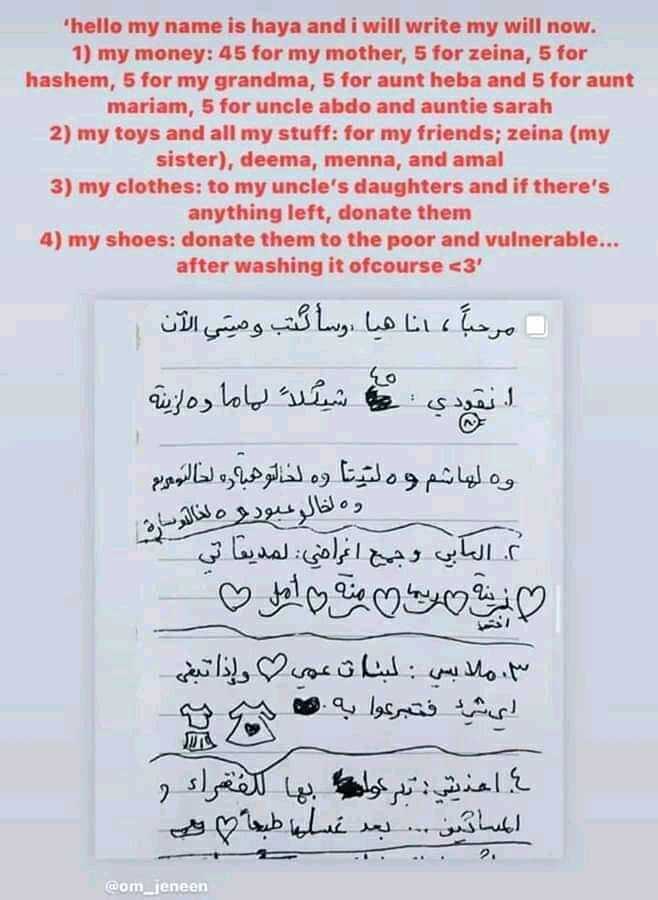 ‘hello my name is haya and i will write my will now.
1) my money: 45 for my mother, 5 for zeina, 5 for
hashem, 5 for my grandma, 5 for aunt heba and 5 for aunt
mariam, 5 for uncle abdo and auntie sarah
2) my toys and all my stuff: for my friends; zeina (my
sister), deema, menna, and amal
3) my clothes: to my uncle’s daughters and if there’s
anything left, donate them
4) my shoes: donate them to the poor and vulnerable...
after washing it ofcourse <3’
مرحباً، انا هيا وسأكتب وصيتي الآن
١. نقودي : ٤٥ شيكلاً لماما و ٥ لزينة
٨٠
و ٥ لهاشم و ٥ لتيتا و ٥ لخالتو هبة و ٥ لخالتو مريم
و ٥ لخالو عبود و ٥ لخالتو سارة
٢. العابي وجميع اغراضي: لصديقاتي
زينة ♡ ريما ♡ منة ♡ أمل ♡
اختي
٣. ملابسي : لبنات عمي ♡ وإذا تبقى
اي شيء فتبرعوا به.
٤. احذيتي: تبرعوا بها للفقراء و
المساكين ... بعد غسلها طبعاً ♡
@om_jeneen